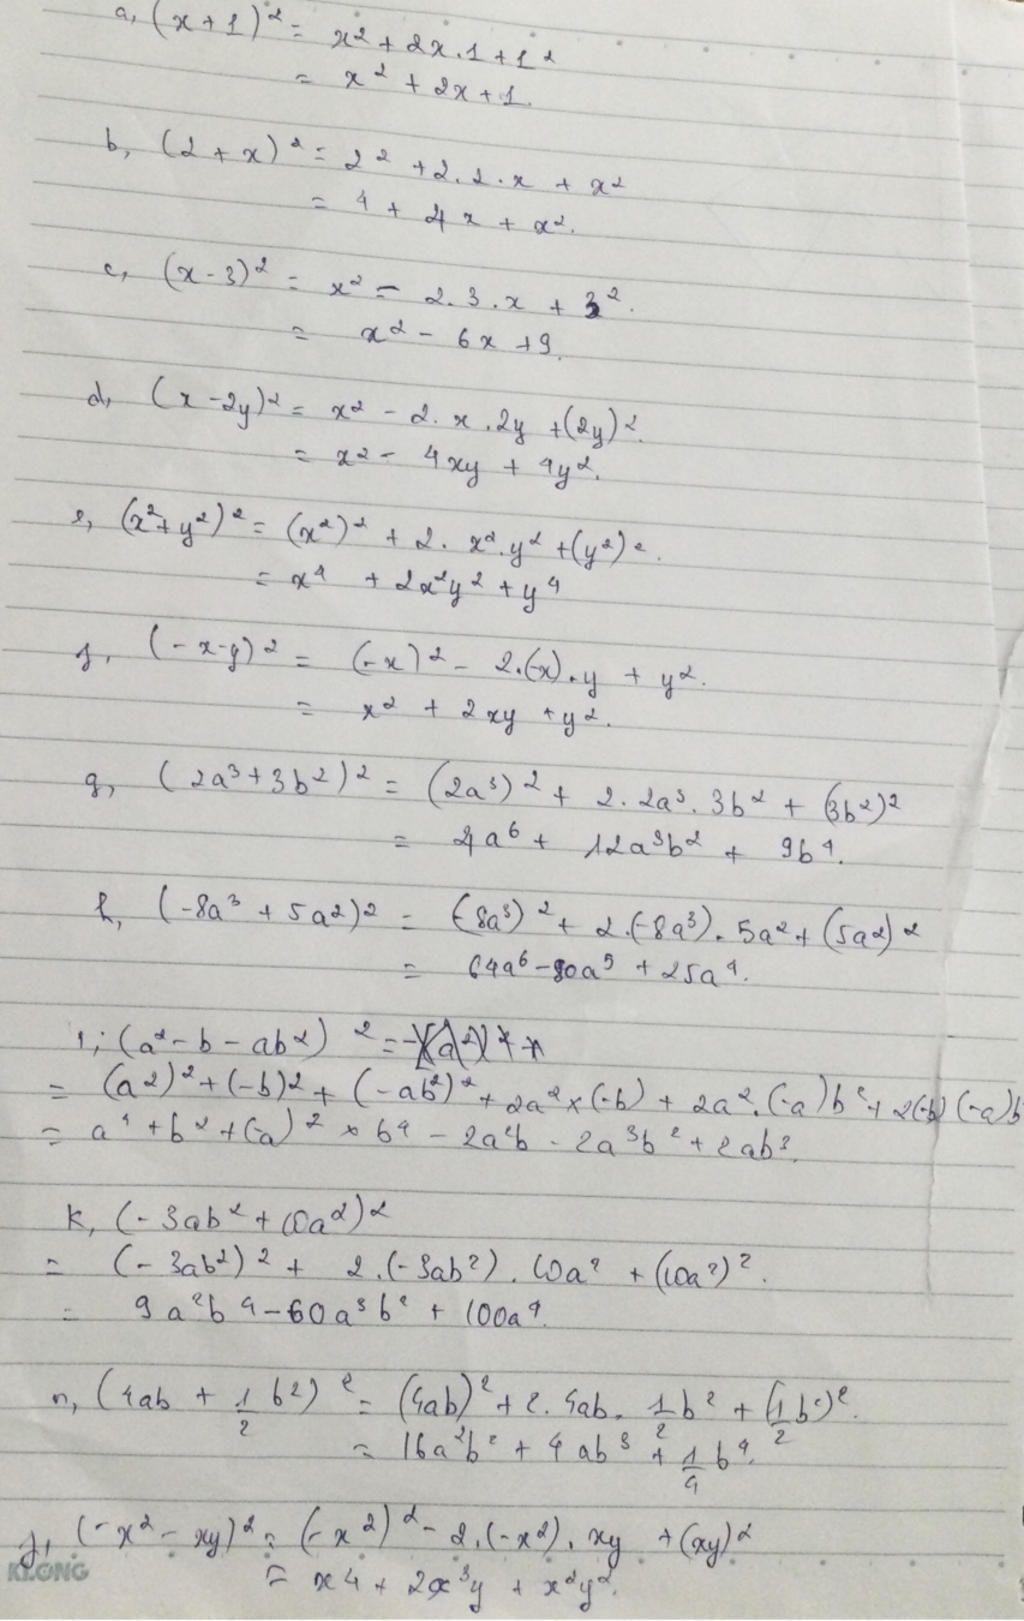 a, (x+1)² = x² + 2x.1 + 1²
= x² + 2x + 1.
b, (2 + x)² = 2² + 2.2.x + x²
= 4 + 4x + x².
c, (x - 3)² = x² - 2.3.x + 3².
= x² - 6x + 9.
d, (x - 2y)² = x² - 2.x.2y + (2y)².
= x² - 4xy + 4y².
e, (x² + y²)² = (x²)² + 2.x².y² + (y²)².
= x⁴ + 2x²y² + y⁴
f, (-x-y)² = (-x)² - 2.(-x).y + y².
= x² + 2xy + y².
g, (2a³ + 3b²)² = (2a³)² + 2.2a³.3b² + (3b²)²
= 4a⁶ + 12a³b² + 9b⁴.
h, (-8a³ + 5a²)² = (-8a³)² + 2.(-8a³).5a² + (5a²)²
= 64a⁶ - 80a⁵ + 25a⁴.
i, (a² - b - ab²)² =
= (a²)² + (-b)² + (-ab²)² + 2a² × (-b) + 2a².(-a)b² + 2(-b)(-a)b
= a⁴ + b² + (-a)² × b⁴ - 2a²b - 2a³b² + 2ab³.
k, (-3ab² + 10a²)²
= (-3ab²)² + 2.(-3ab²).10a² + (10a²)².
= 9a²b⁴ - 60a³b² + 100a⁴.
n, (4ab + 1/2 b²)² = (4ab)² + 2.4ab.1/2 b² + (1/2 b²)².
= 16a²b² + 4ab³ + 1/4 b⁴.
j, (-x² - xy)² = (-x²)² - 2.(-x²).xy + (xy)²
KLONG
= x⁴ + 2x³y + x²y².